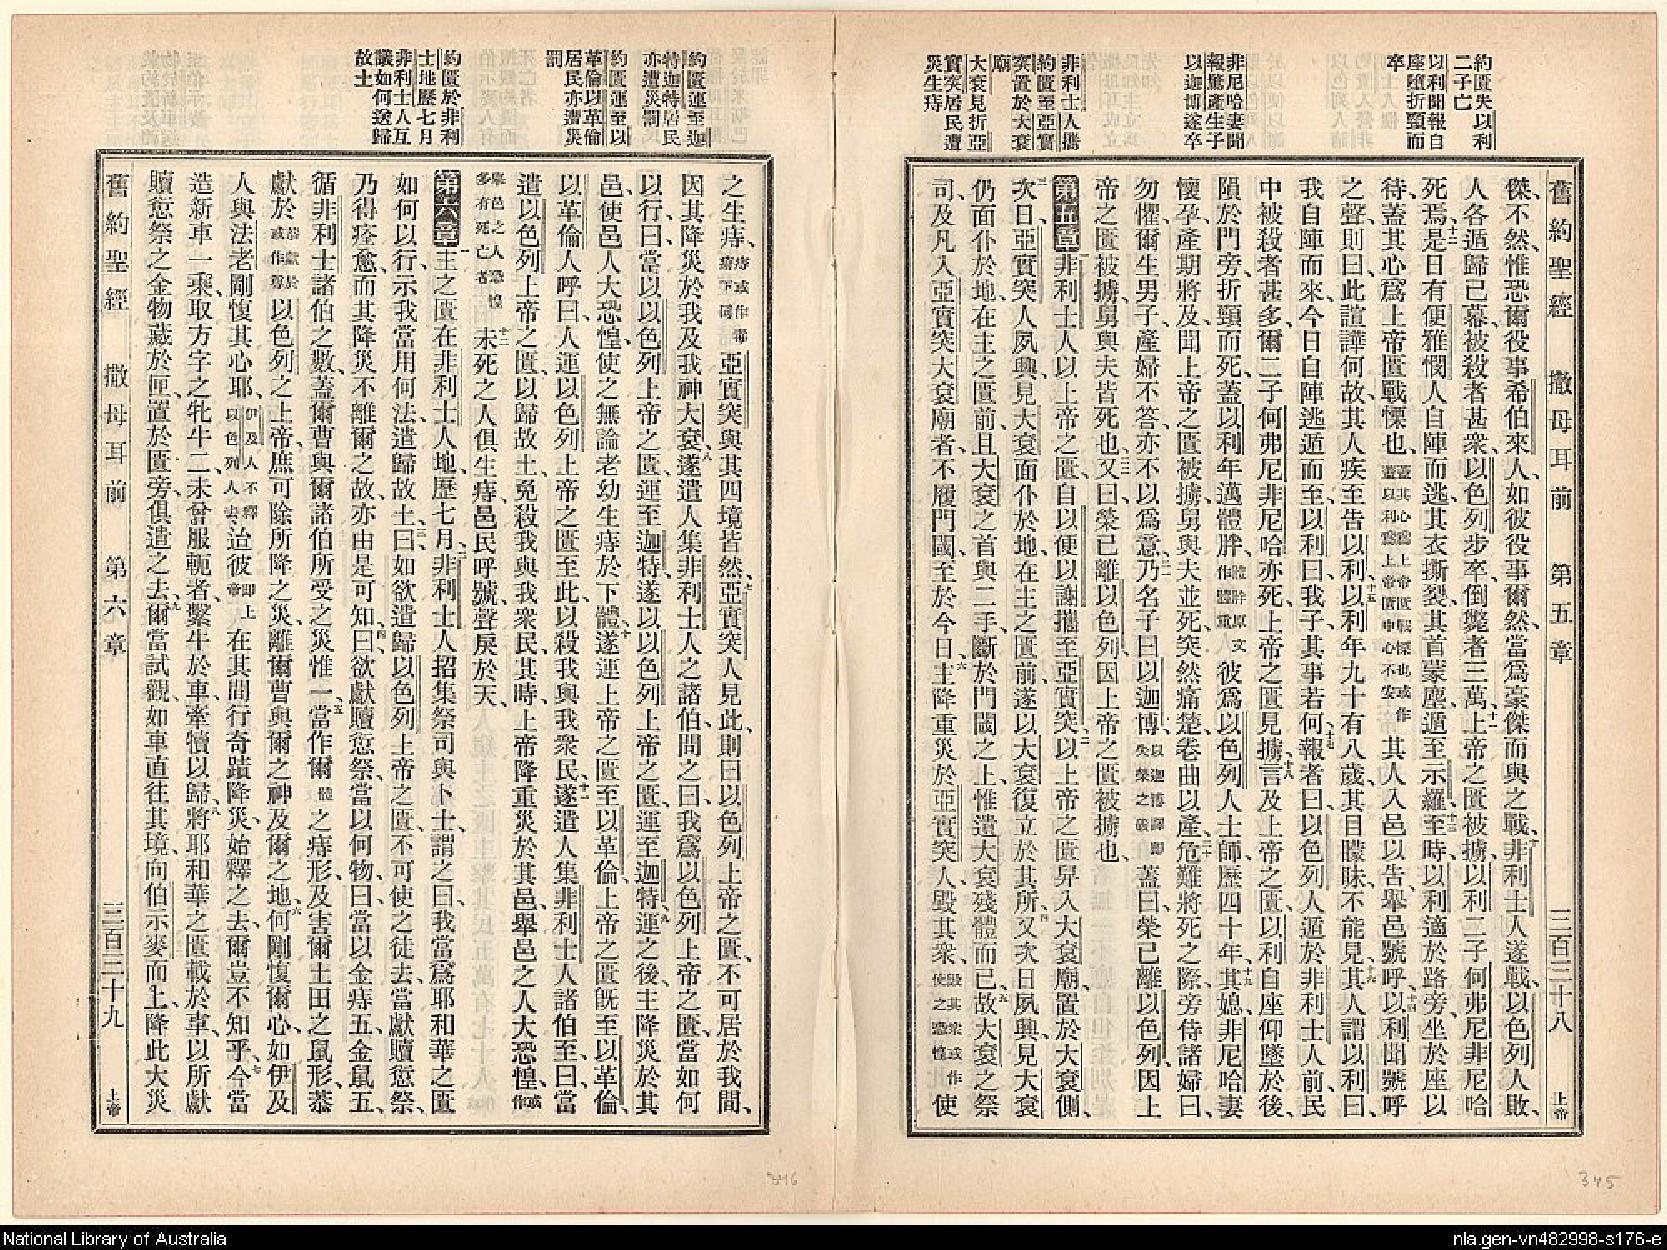 舊約聖經 撒母耳前 第五章 三百三十八 上帝
約匱失以利
二子亡
以利聞報自
座墮折頸而
卒
非尼哈妻聞
報驚產生子
以迦博遂卒
非利士人攜
約匱至亞實
突置於大袞
廟
大袞見折亞
實突居民遭
災生痔
傑、不然、惟恐爾役事希伯來人、如彼役事爾然、當爲豪傑而與之戰、十非利士人遂戰、以色列人敗、
人各遁歸己幕、被殺者甚衆、以色列步卒倒斃者三萬、十一上帝之匱被擄、以利二子何弗尼非尼哈
死焉、十二是日有便雅憫人自陣而逃、其衣撕裂、其首蒙塵、遁至示羅、十三至時以利適於路旁、坐於座以
待、蓋其心爲上帝匱戰慄也、其人入邑以告、舉邑號呼、十四以利聞號呼
之聲、則曰、此諠譁何故、其人疾至告以利、十五以利年九十有八歲、其目矇昧、不能見、十六其人謂以利曰、
我自陣而來、今日自陣逃遁而至、以利曰、我子、其事若何、十七報者曰、以色列人遁於非利士人前、民
中被殺者甚多、爾二子何弗尼非尼哈亦死、上帝之匱見擄、十八言及上帝之匱、以利自座仰墜於後、
隕於門旁、折頸而死、蓋以利年邁體胖、彼爲以色列人士師、歷四十年、十九其媳非尼哈妻
懷孕、產期將及、聞上帝之匱被擄、舅與夫並死、突然痛楚、卷曲以產、二十危難將死之際、旁侍諸婦曰、
勿懼、爾生男子、產婦不答、亦不以爲意、乃名子曰以迦博、蓋曰、榮已離以色列、因上
帝之匱被擄、舅與夫皆死也、又曰、榮已離以色列、因上帝之匱被擄也、
第五章 一非利士人以上帝之匱、自以便以謝攜至亞實突、二以上帝之匱舁入大袞廟、置於大袞側、
三次日、亞實突人夙興、見大袞面仆於地、在主之匱前、遂以大袞復立於其所、四又次日夙興、見大袞
仍面仆於地、在主之匱前、且大袞之首與二手、斷於門閾之上、惟遺大袞殘體而已、五故大袞之祭
司、及凡入亞實突大袞廟者、不履門閾、至於今日、六主降重災於亞實突人、毀其衆、使
約匱運至迦
特迦特居民
亦遭災罰
約匱運至以
革倫以革倫
居民亦遭災
罰
約匱於非利
士地歷七月
非利士人互
議如何送歸
故土
之生痔、亞實突與其四境皆然、七亞實突人見此、則曰、以色列上帝之匱、不可居於我間、
因其降災於我及我神大袞、八遂遣人集非利士人之諸伯、問之曰、我爲以色列上帝之匱、當如何
以行、曰、當以以色列上帝之匱、運至迦特、遂以以色列上帝之匱、運至迦特、九運之之後、主降災於其
邑、使邑人大恐惶、使之無論老幼、生痔於下體、十遂運上帝之匱至以革倫、上帝之匱旣至以革倫、
以革倫人呼曰、人運以色列上帝之匱至此、以殺我與我衆民、十一遂遣人集非利士人諸伯至、曰、當
遣以色列上帝之匱、以歸故土、免殺我與我衆民、其時、上帝降重災於其邑、舉邑之人大恐惶、
十二未死之人俱生痔、邑民呼號、聲戾於天、
第六章 一主之匱在非利士人地、歷七月、二非利士人招集祭司與卜士、謂之曰、我當爲耶和華之匱
如何以行、示我當用何法遣歸故土、三曰、如欲遣歸以色列上帝之匱、不可使之徒去、當獻贖愆祭、
乃得痊愈、而其降災不離爾之故、亦由是可知、四曰、欲獻贖愆祭、當以何物、曰、當以金痔五、金鼠五、
循非利士諸伯之數、蓋爾曹與爾諸伯所受之災惟一、五當作爾體之痔形、及害爾土田之鼠形、恭
獻於以色列之上帝、庶可除所降之災、離爾曹與爾之神及爾之地、六何剛愎爾心、如伊及
人與法老剛愎其心耶、治彼在其間行奇蹟降災、始釋之去、爾豈不知乎、七今當
造新車一乘、取方字之牝牛二、未曾服軛者、繫牛於車、牽犢以歸、八將耶和華之匱載於車、以所獻
贖愆祭之金物、藏於匣、置於匱旁、俱遣之去、九爾當試觀、如車直往其境、向伯示麥而上、降此大災
舊約聖經 撒母耳前 第六章 三百三十九 上帝
346
345
National Library of Australia
nla.gen-vn482998-s176-e